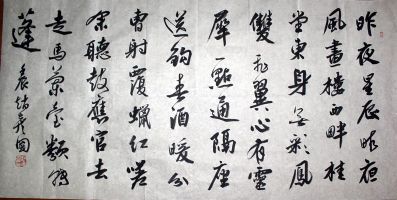 昨夜星辰昨夜
風畫樓西畔桂
堂東身无彩鳳
雙飛翼心有靈
犀一點通隔座
送鈎春酒暖分
曹射覆蠟紅嗟
余聽鼓應官去
走馬蘭臺類轉
蓬